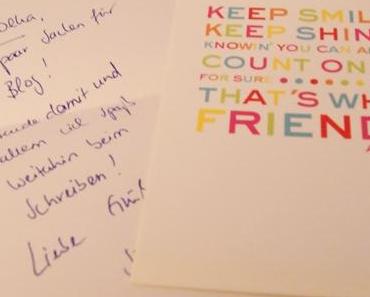 paar Sachen für
Blog!
damit und
allem viel Spaß
weiterhin beim
Schreiben!
Liebe
KEEP SMIL
KEEP SHIN
KNOWIN' YOU CAN A
COUNT ON
FOR SURE
THAT'S WH
FRIEND